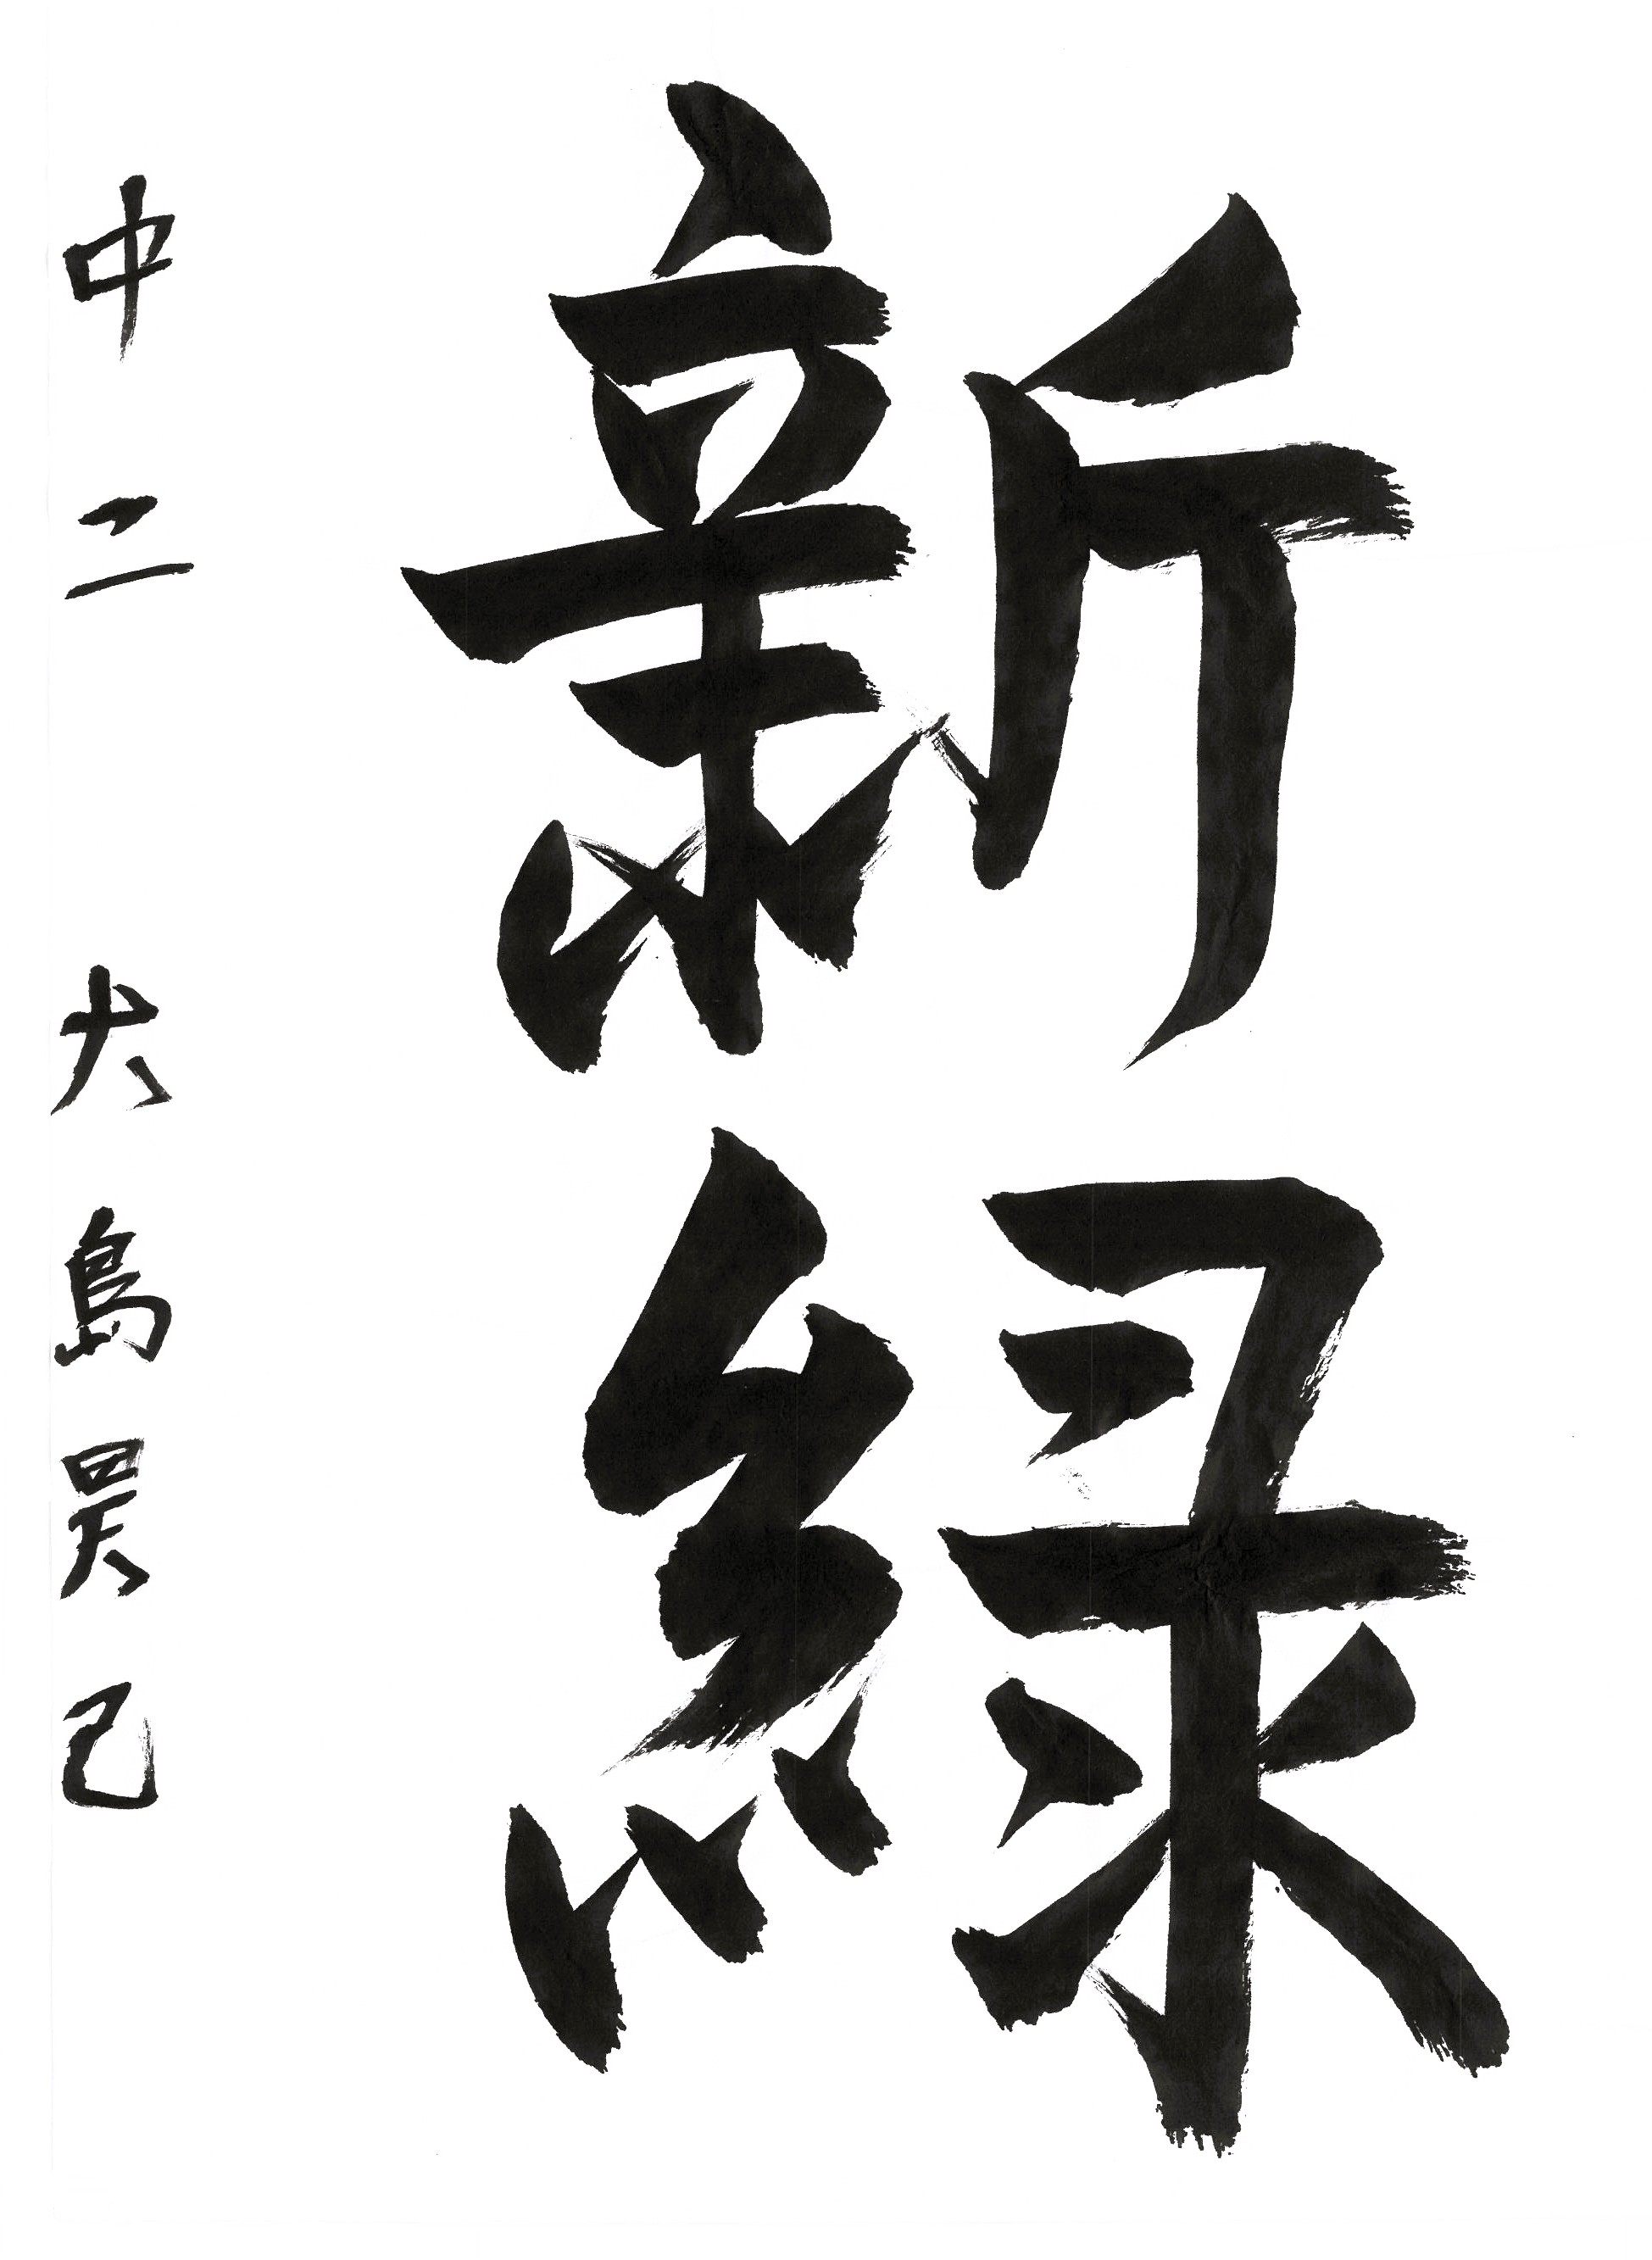 新緑
中二 大島昊己